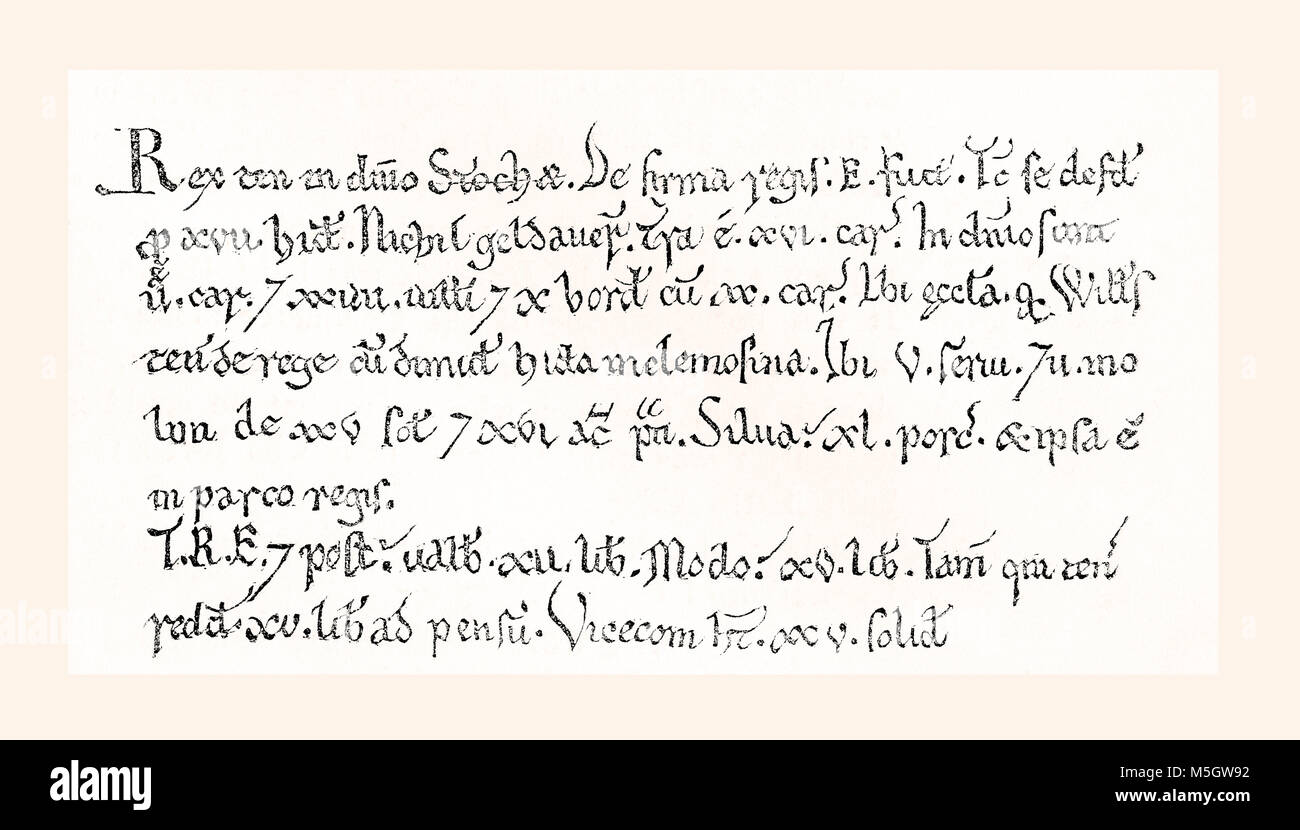 Rex ten̄ in dn̄io Stochæ. De firma regis. E. fuit. Tc̄ se defđ
ꝓ xvii. hiđ. Nichil geldauer̄. Tr̄a ē. xvi. car̄. In dn̄io sunt
ii. car̄. ⁊ xxiiii. uilli ⁊ x borđ cū xx. car̄. Ibi æccl̄a. q̄ Will̄s
ten̄ de rege cū dimiđ hida in elemosina. Ibi v. serui. ⁊ ii. mo
lini de xxv sol̄ ⁊ xvi ac̄ p̄ti. Silua. xl. porc̄. & ipsa ē
in parco regis.
T.R.E. ⁊ post. ualƀ. xii. liƀ. Modo. xv. liƀ. Tam̄ qui ten̄
redđ. xv. liƀ ad pensū. Vicecom̄ ht̄. xxv. soliđ
alamy
Image ID: M5GW92
www.alamy.com